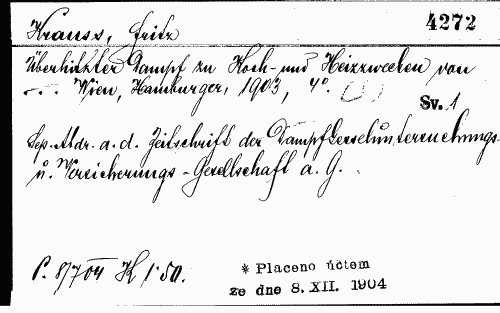 Krauss, Fritz
4272
Überhitzter Dampf zu Koch- und Heizzwecken von
--- Wien, Hamburger, 1903, 4°.
Sv. 1
Sep. Abdr. a. d. Zeitschrift der Dampfkesseluntersuchungs-
u. Versicherungs-Gesellschaft a. G.
P. 8/704 K 1·50.
* Placeno účtem
ze dne 8. XII. 1904